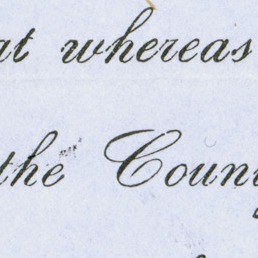 at whereas
the Coun